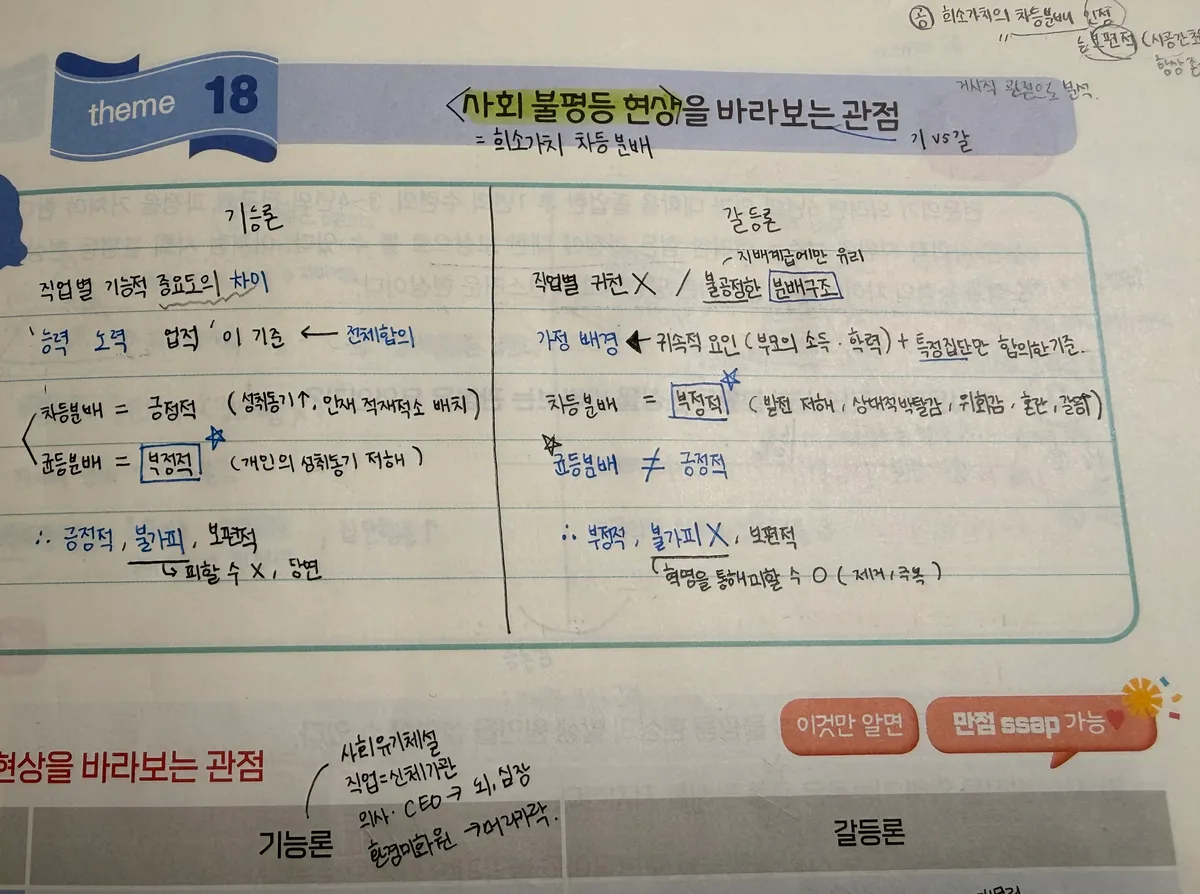 공 희소가치의 차등분배 인정
보편적 (시공간초
항상 존
거시적 관점으로 분석.
theme 18
<사회 불평등 현상>을 바라보는 관점
= 희소가치 차등분배
기 vs 갈
기능론
직업별 기능적 중요도의 차이
'능력 노력 업적'이 기준 ← 전체합의
차등분배 = 긍정적 (성취동기↑, 인재 적재적소 배치)
균등분배 = 부정적 ☆ (개인의 성취동기 저해)
∴ 긍정적, 불가피, 보편적
↳ 피할 수 X, 당연
갈등론
지배계급에만 유리
직업별 귀천 X / 불공정한 분배구조
가정 배경 ← 귀속적 요인 (부모의 소득·학력) + 특정집단만 합의한 기준.
차등분배 = 부정적 ☆ (발전 저해, 상대적박탈감, 위화감, 혼란, 갈등↑)
☆ 균등분배 ≠ 긍정적
∴ 부정적, 불가피 X, 보편적
혁명을 통해 피할 수 O (제거, 극복)
이것만 알면 만점 ssap 가능♥
현상을 바라보는 관점
사회유기체설
직업=신체기관
의사·CEO → 뇌, 심장
환경미화원 → 머리카락.
기능론
갈등론